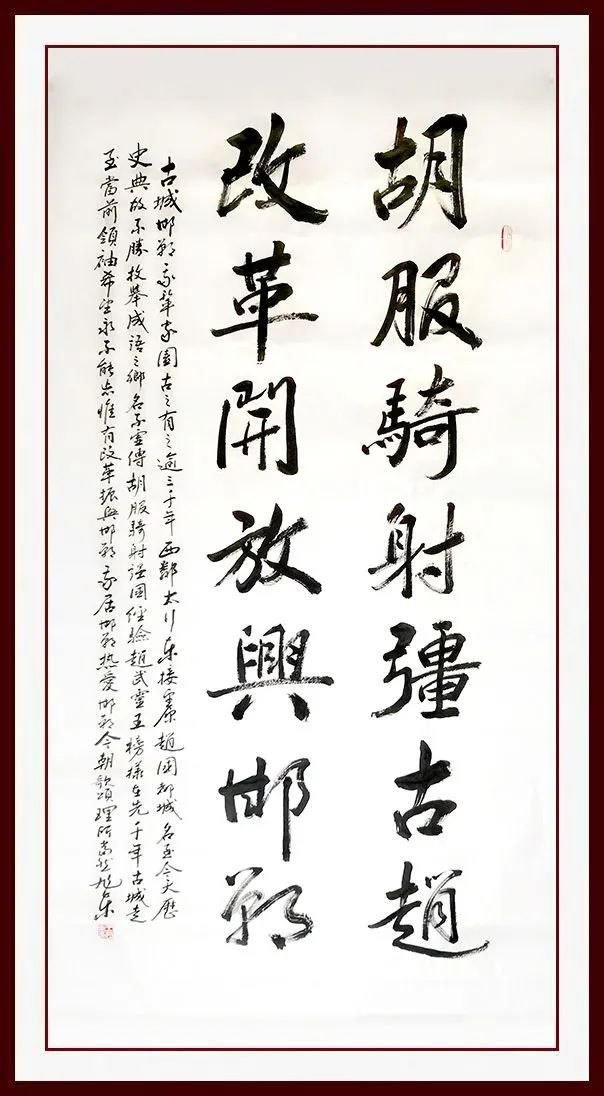 胡服騎射彊古趙
改革開放興邯鄲
古城邯鄲我輩家園古之有之逾三千年西鄰太行东接中原趙國都城名至今天歷
史典故不勝枚舉成語之鄉名不虛傳胡服騎射强國經驗趙武靈王榜樣在先千年古城走
至當前領袖希望永不能忘惟有改革振興邯鄲我居邯鄲热愛邯鄲今朝歌頌理所當然旭东